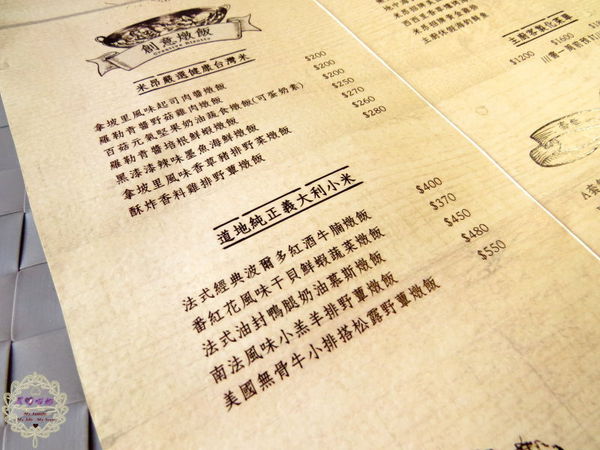 創意燉飯
Creative Risotto
米昂嚴選健康台灣米
拿坡里風味起司肉醬燉飯 $200
羅勒青醬野菇雞肉燉飯 $200
百菇元氣堅果奶油蔬食燉飯(可蛋奶素) $200
羅勒青醬培根鮮蝦燉飯 $250
黑漆漆辣味墨魚海鮮燉飯 $270
拿坡里風味香草豬排野菜燉飯 $260
酥炸香料雞排野蕈燉飯 $280
道地純正義大利小米
法式經典波爾多紅酒牛腩燉飯 $400
番紅花風味干貝鮮蝦蔬菜燉飯 $370
法式油封鴨腿奶油慕斯燉飯 $450
南法風味小羔羊排野蕈燉飯 $480
美國無骨牛小排搭松露野蕈燉飯 $550
$1200
$1600
A套餐